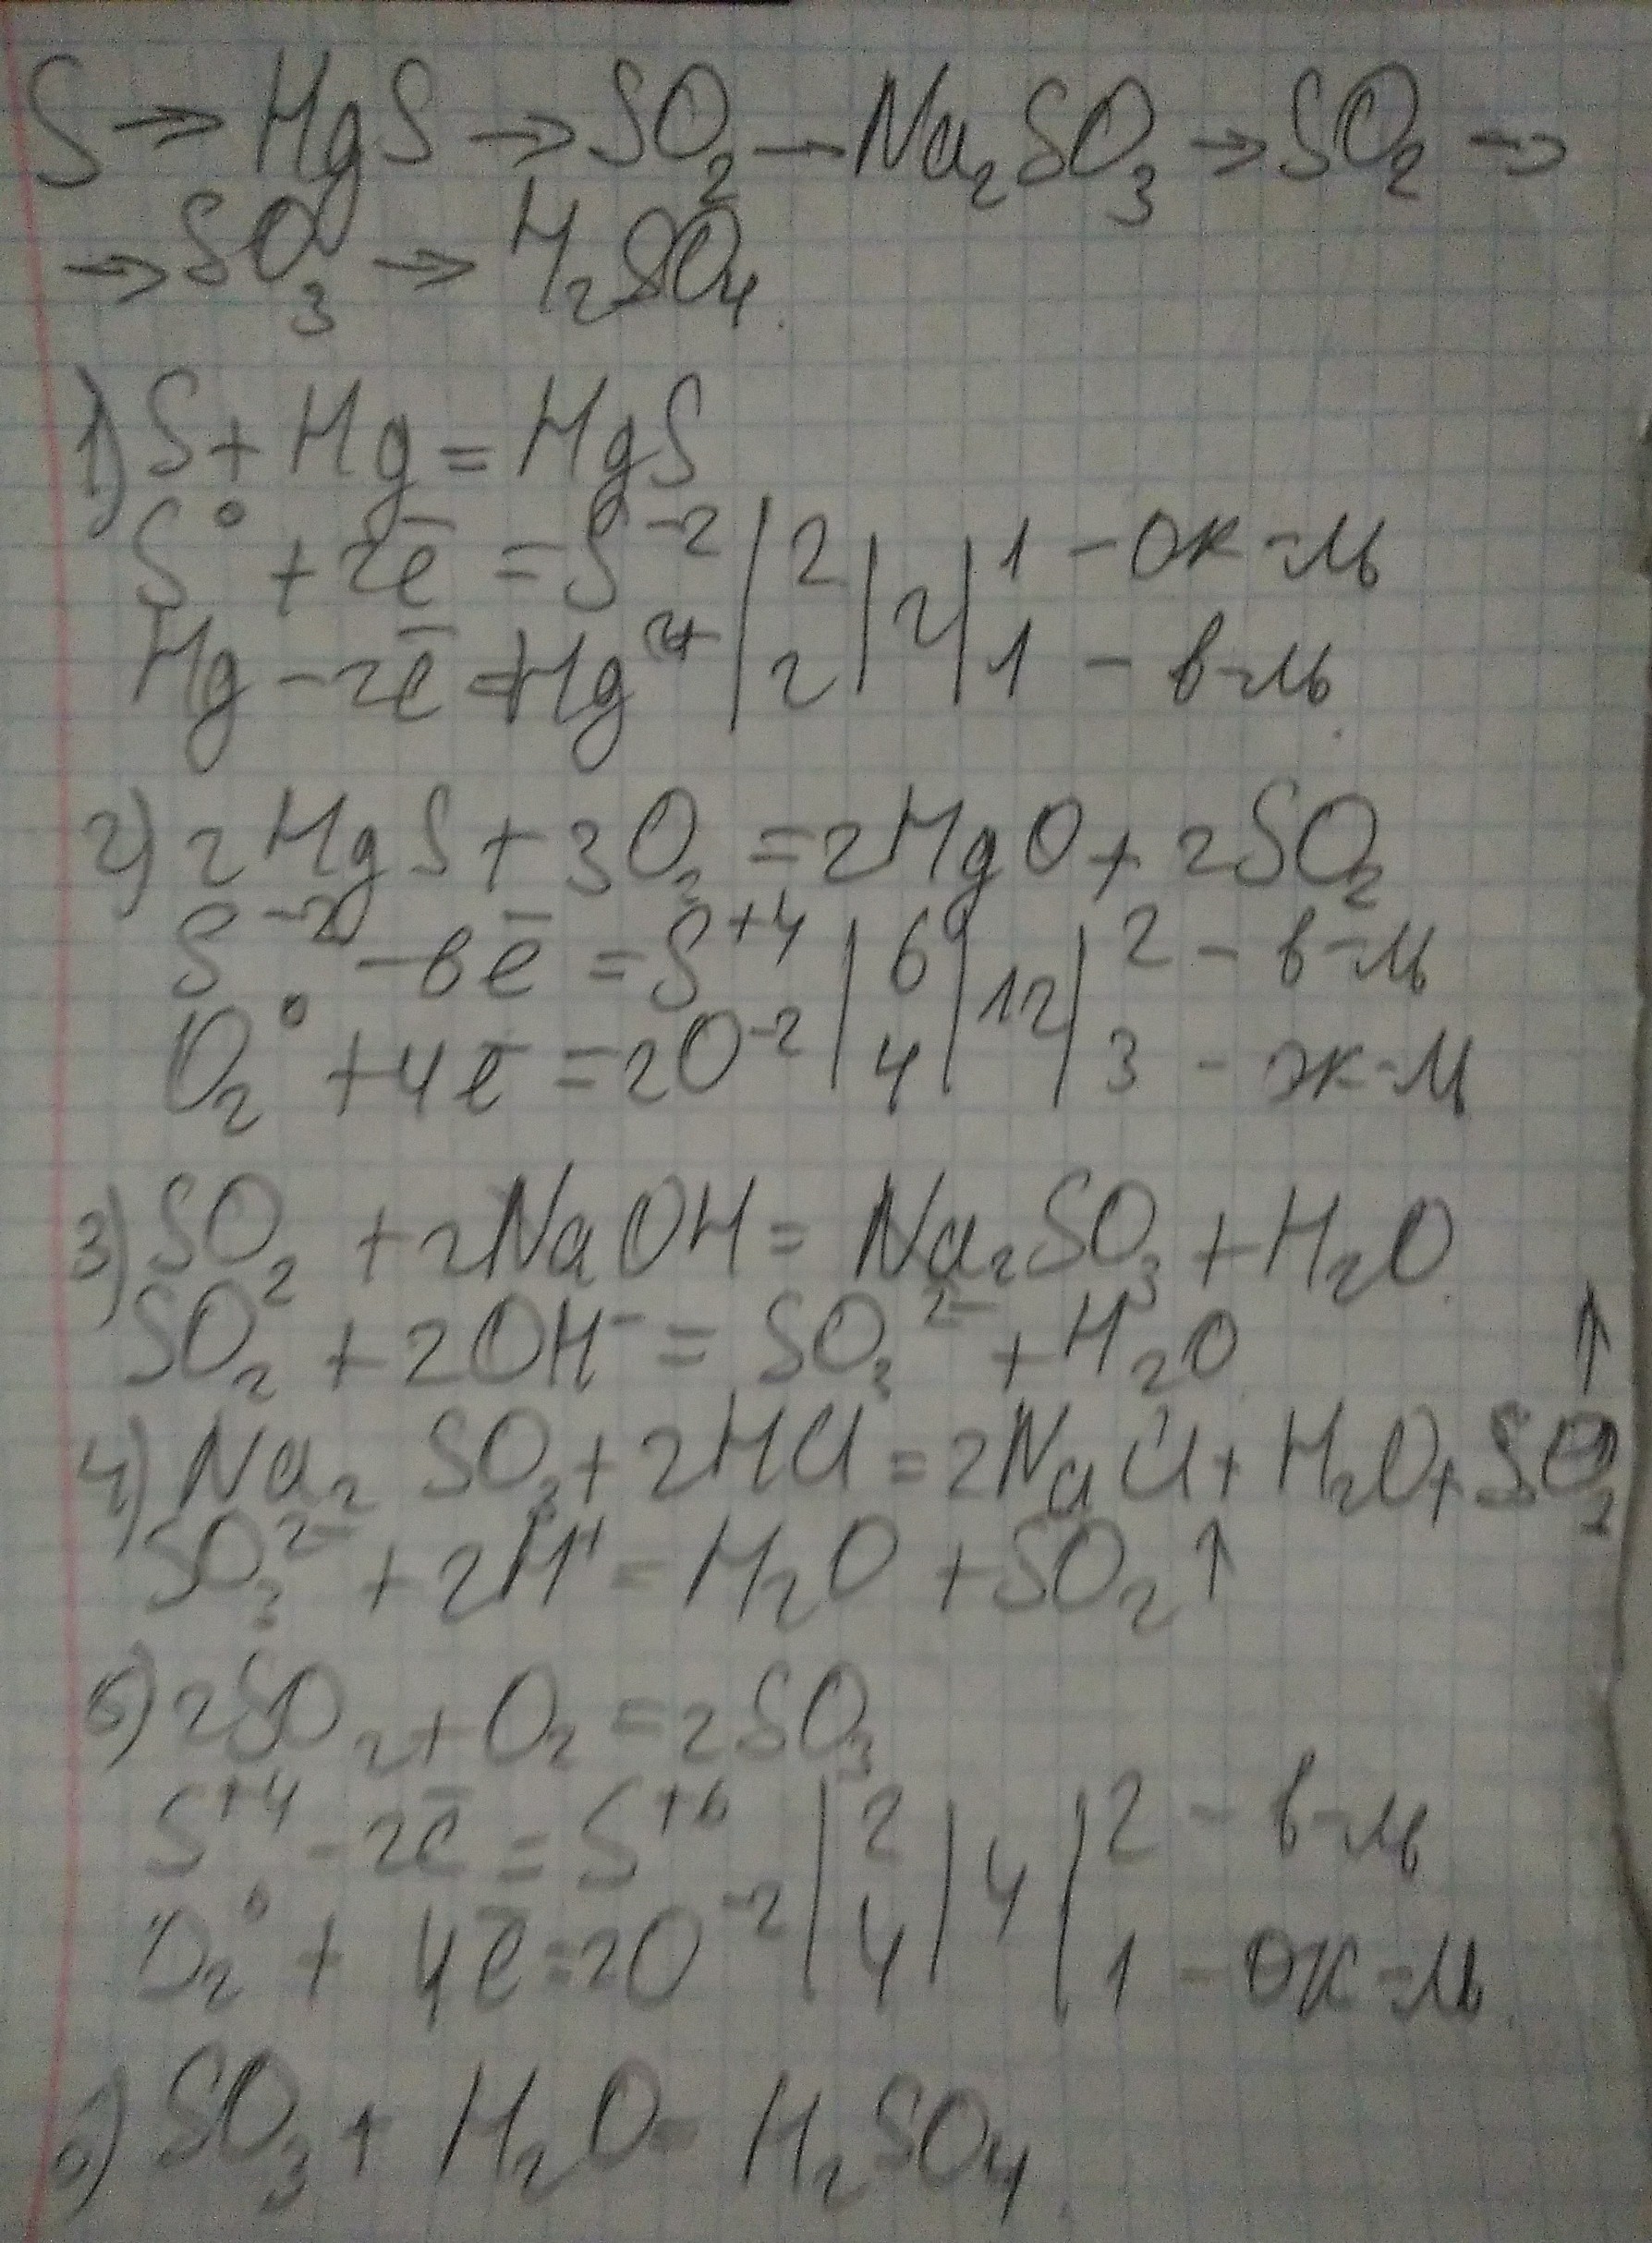 S → HgS → SO₂ → Na₂SO₃ → SO₂ →
→ SO₃ → H₂SO₄.
1) S + Hg = HgS
S⁰ + 2ē = S⁻² | 2 | 2 | 1 – ок-ль
Hg – 2ē = Hg²⁺ | 2 | | 1 – в-ль.
2) 2HgS + 3O₂ = 2HgO + 2SO₂
S⁻² – 6ē = S⁺⁴ | 6 | 12 | 2 – в-ль
O₂⁰ + 4ē = 2O⁻² | 4 | | 3 – ок-ль
3) SO₂ + 2NaOH = Na₂SO₃ + H₂O.
SO₂ + 2OH⁻ = SO₃²⁻ + H₂O.
4) Na₂SO₃ + 2HCl = 2NaCl + H₂O + SO₂↑
SO₃²⁻ + 2H⁺ = H₂O + SO₂↑
5) 2SO₂ + O₂ = 2SO₃
S⁺⁴ – 2ē = S⁺⁶ | 2 | 4 | 2 – в-ль
O₂⁰ + 4ē = 2O⁻² | 4 | | 1 – ок-ль.
6) SO₃ + H₂O = H₂SO₄.